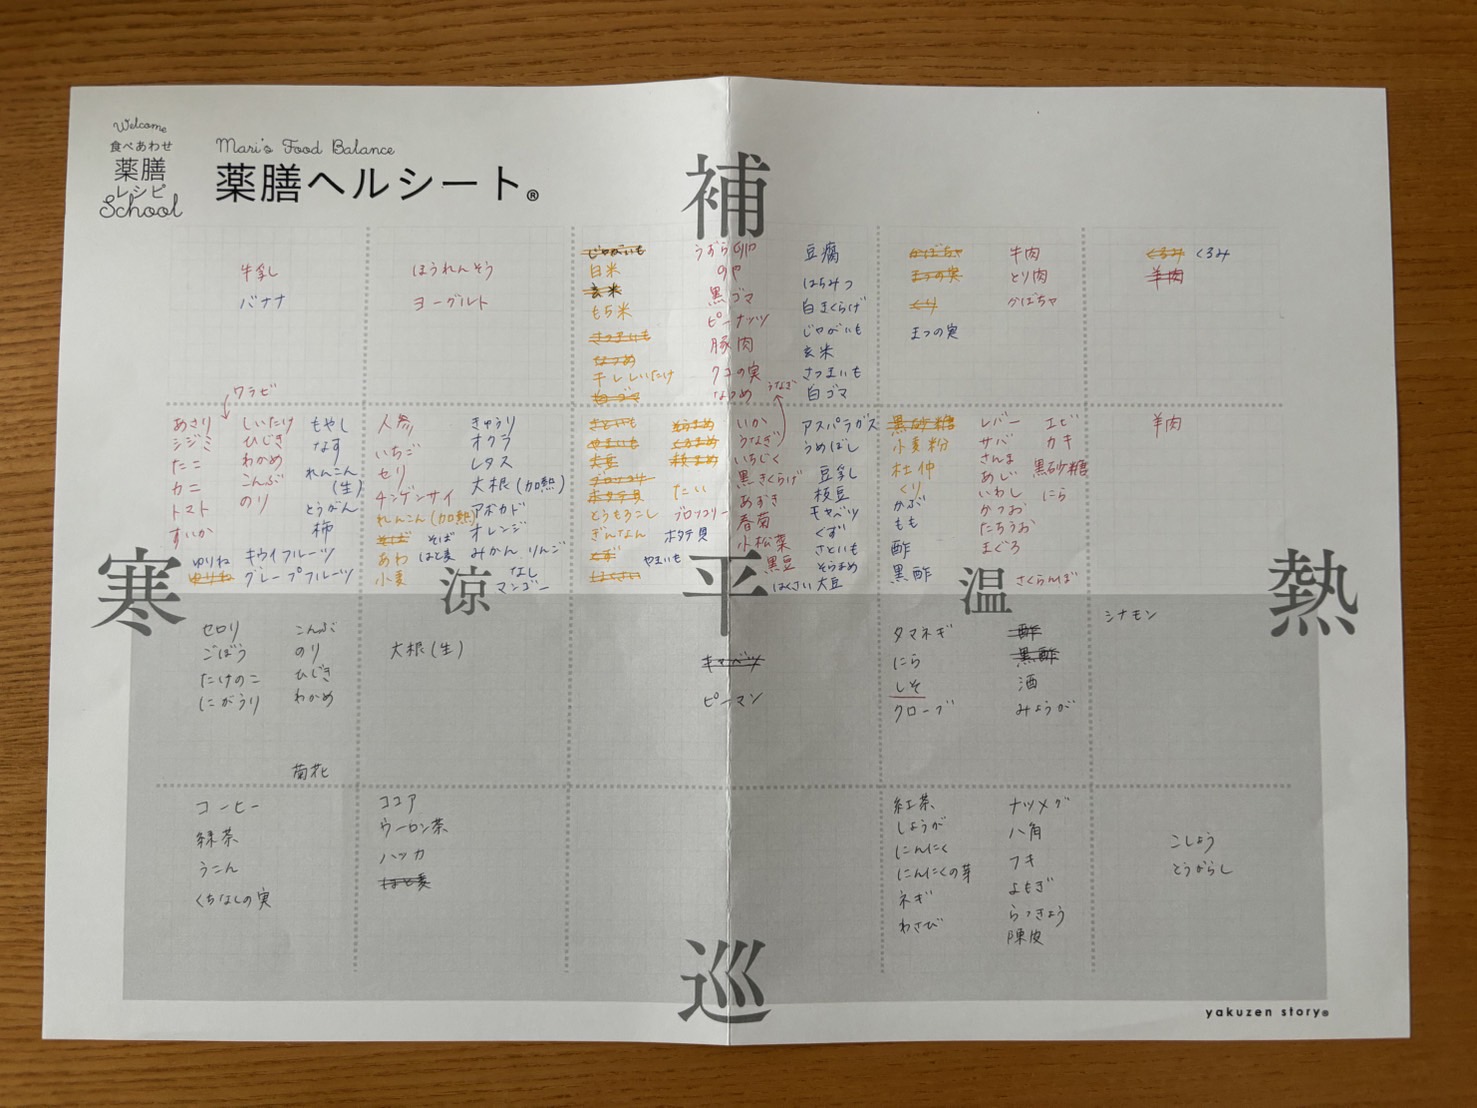 Welcome
食べあわせ
薬膳
レシピ
School
Mari's Food Balance
薬膳ヘルシート®
補
牛乳
バナナ
ほうれんそう
ヨーグルト
じゃがいも
白米
玄米
もち米
さつまいも
なつめ
干ししいたけ
白ゴマ
うずらの卵
卵
黒ゴマ
ピーナッツ
豚肉
クコの実
なつめ
うなぎ
豆腐
はちみつ
白きくらげ
じゃがいも
玄米
さつまいも
白ゴマ
かぼちゃ
まつの実
くり
まつの実
牛肉
とり肉
かぼちゃ
くるみ くるみ
羊肉
ワラビ
あさり
シジミ
たこ
カニ
トマト
すいか
しいたけ
ひじき
わかめ
こんぶ
のり
もやし
なす
れんこん
(生)
とうがん
柿
ゆりね
ゆりね
キウイフルーツ
グレープフルーツ
人参
いちご
セリ
チンゲンサイ
れんこん(加熱)
そば そば
あわ はと麦
小麦
きゅうり
オクラ
レタス
大根(加熱)
アボカド
オレンジ
みかん りんご
なし
マンゴー
さといも
やまいも
大豆
ブロッコリー
ホタテ貝
とうもろこし
ぎんなん
くず
はくさい
そらまめ
くろまめ
枝まめ
たい
ブロッコリー
ホタテ貝
やまいも
いか
うなぎ
いちじく
黒きくらげ
あずき
春菊
小松菜
黒豆
アスパラガス
うめぼし
豆乳
枝豆
キャベツ
くず
さといも
そらまめ
はくさい 大豆
黒砂糖
小麦粉
杜仲
くり
かぶ
もも
酢
黒酢
レバー
サバ
さんま
あじ
いわし
かつお
たちうお
まぐろ
さくらんぼ
エビ
カキ
黒砂糖
にら
羊肉
寒
涼
平
温
熱
セロリ
ごぼう
たけのこ
にがうり
こんぶ
のり
ひじき
わかめ
菊花
大根(生)
キャベツ
ピーマン
タマネギ
にら
しそ
クローブ
酢
黒酢
酒
みょうが
シナモン
コーヒー
緑茶
うこん
くちなしの実
ココア
ウーロン茶
ハッカ
はと麦
紅茶
しょうが
にんにく
にんにくの芽
ネギ
わさび
ナツメグ
八角
フキ
よもぎ
らっきょう
陳皮
こしょう
とうがらし
巡
yakuzen story®